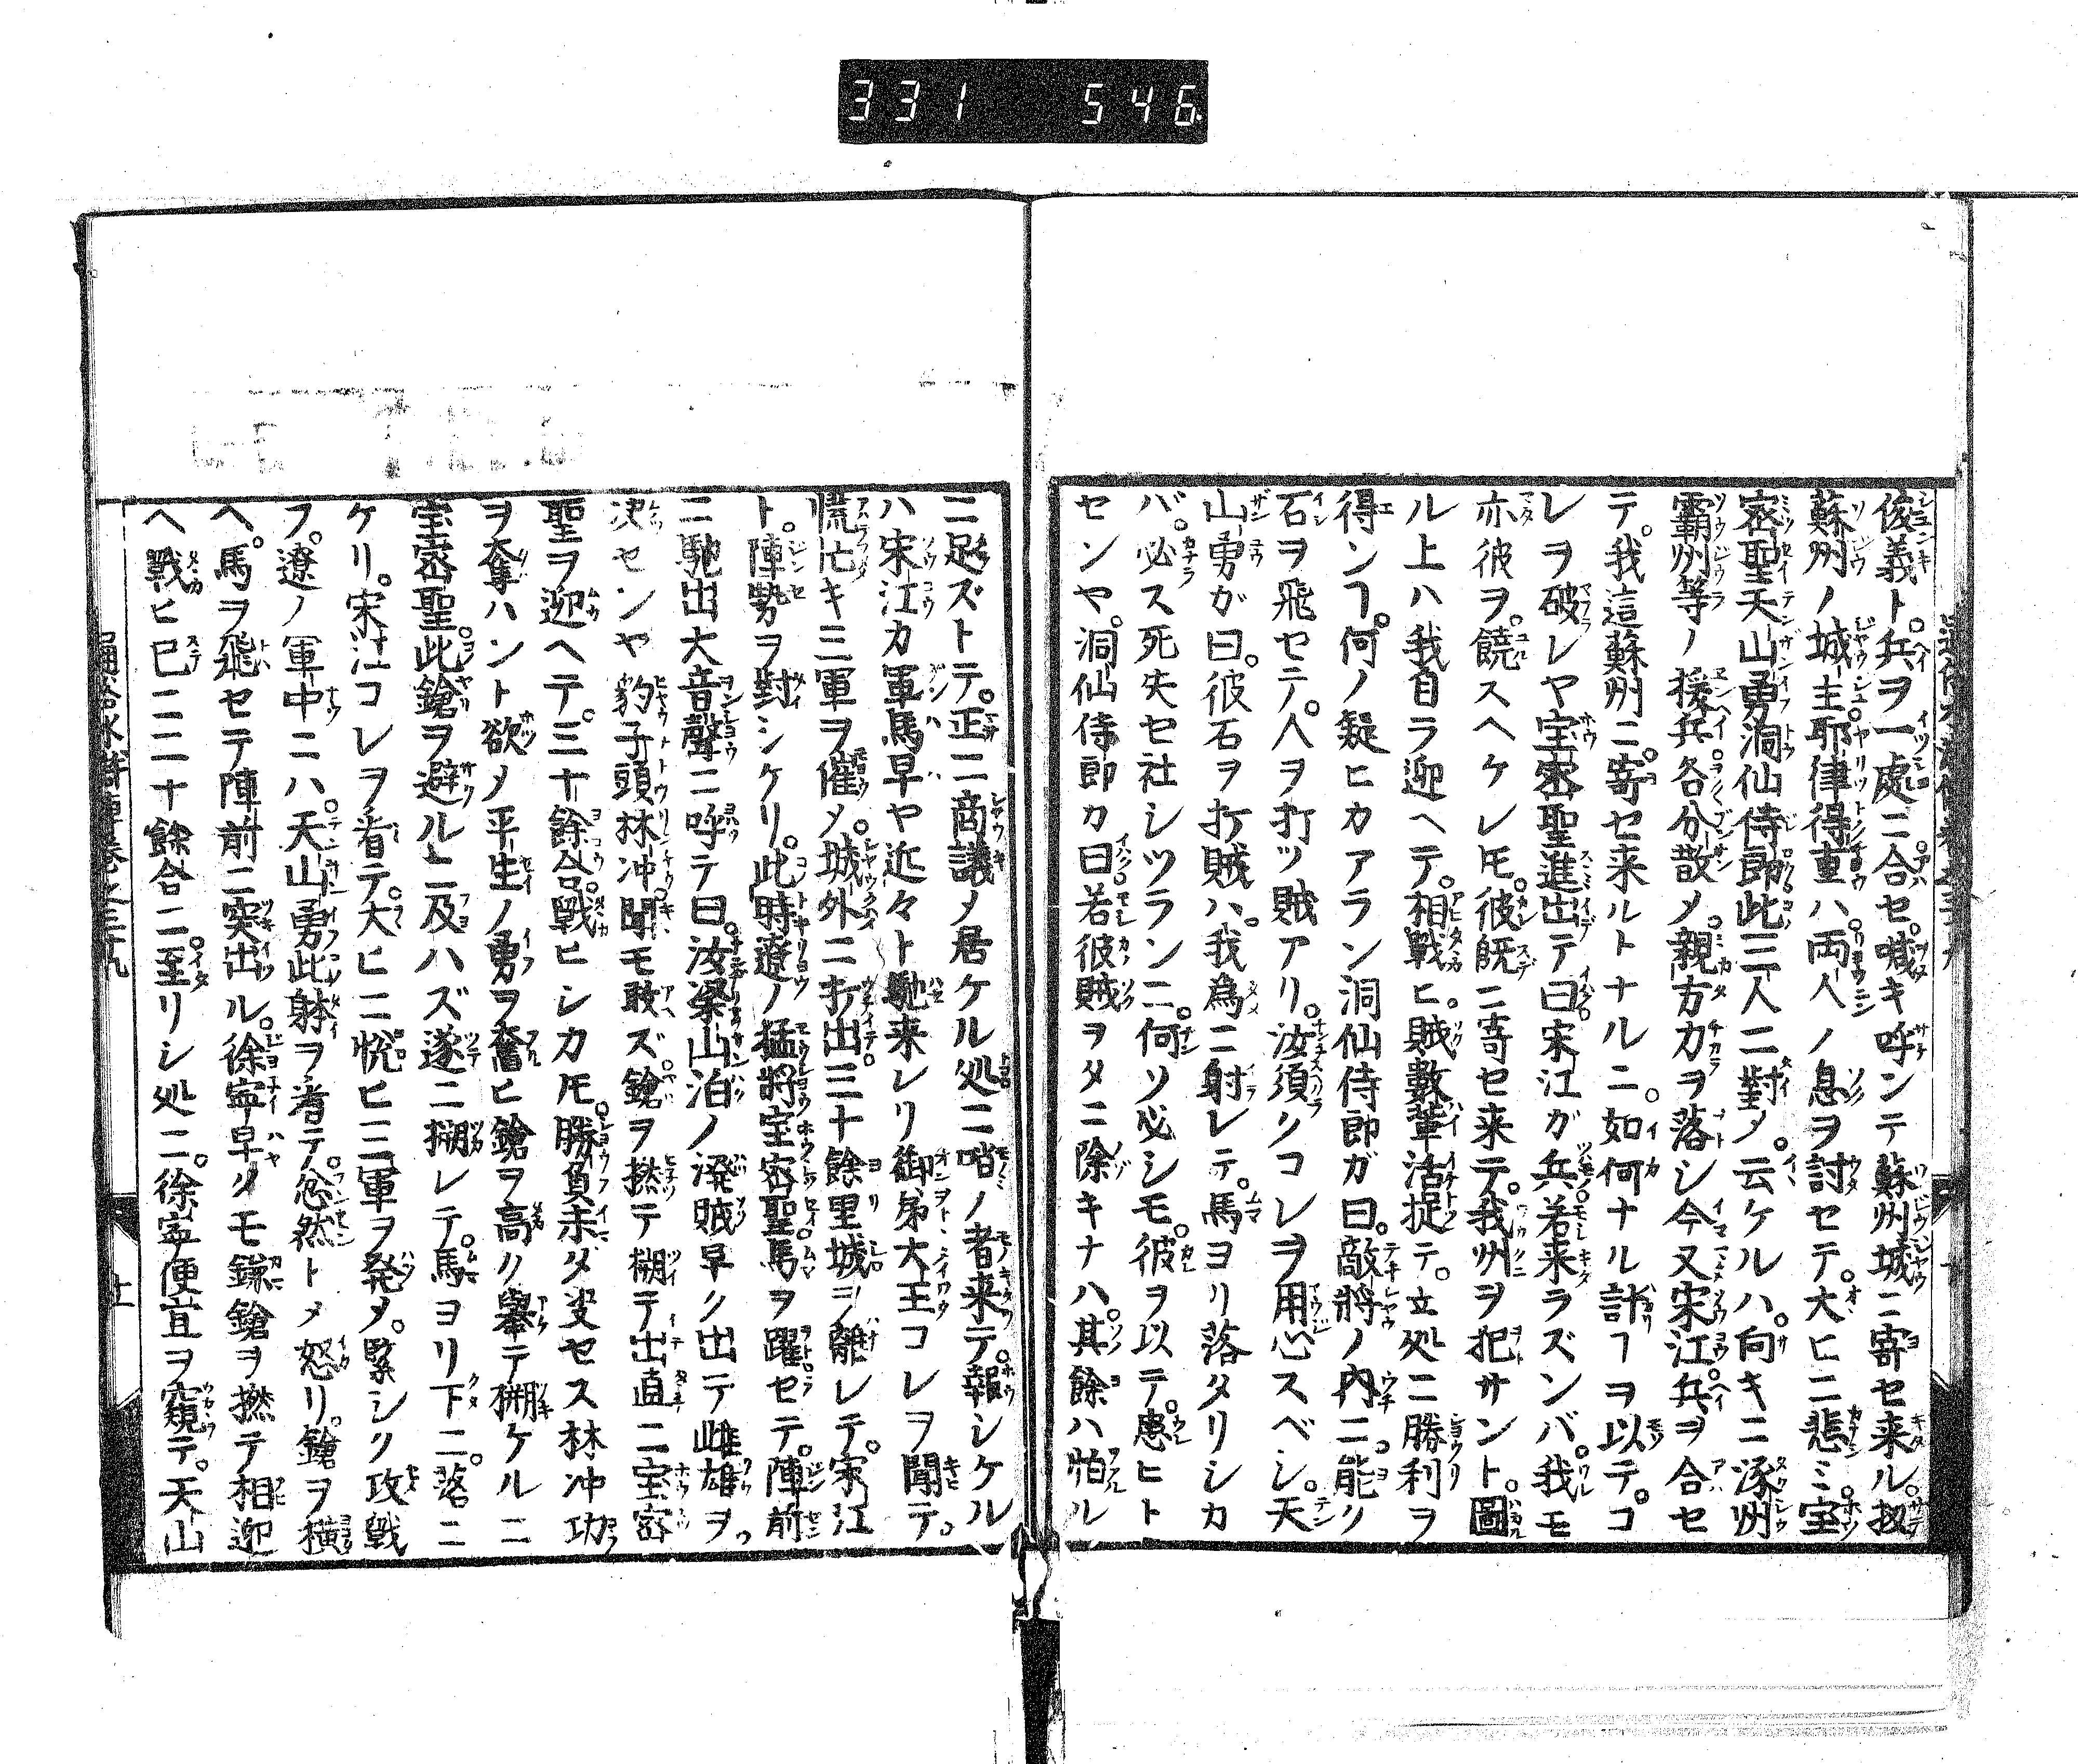 331 546
俊義ト。兵ヲ一處ニ合セ。喊キ呼ンテ蘇州城ニ寄セ来ル。扨
蘇州ノ城主耶律得重ハ。両人ノ息ヲ討セテ。大ヒニ悲ミ。宝
密聖天山勇洞仙侍郎此三人ニ對メ。云ケルハ。向キニ涿州
霸州等ノ援兵。各分散メ。親方力ヲ落シ今又宋江兵ヲ合セ
テ。我這蘇州ニ。寄セ来ルトナルニ。如何ナル計ヿヲ以テ。コ
レヲ破レヤ宝密聖進出テ曰宋江ガ兵若来ラズンバ。我モ
亦彼ヲ。饒スヘケレ𪜈。彼既ニ寄セ来テ。我州ヲ犯サント。圖
ル上ハ我自ラ迎ヘテ。相戰ヒ。賊數輩活捉テ。立処ニ勝利ヲ
得ンヿ。何ノ疑ヒカアラン洞仙侍郎ガ曰。敵將ノ内ニ。能ク
石ヲ飛セテ。人ヲ打ツ賊アリ。汝須クコレヲ用心スベシ。天
山勇ガ曰。彼石ヲ打賊ハ。我為ニ射レテ。馬ヨリ落タリシカ
バ。必ス死失セ社シツランニ。何ソ必シモ。彼ヲ以テ。患ヒト
センヤ。洞仙侍郎カ曰。若彼賊ヲタニ除キナハ。其餘ハ怕ル
ニ足ズトテ。正ニ商議メ居ケル処ニ哨ノ者来テ。報シケル
ハ宋江カ軍馬早ヤ近々ト馳来レリ御弟大王コレヲ聞テ。
慌忙キ三軍ヲ催メ。城外ニ打出三十餘里城ヲ離レテ。宋江
ト。陣勢ヲ對シケリ。此時遼ノ猛將宝密聖馬ヲ躍セテ。陣前
ニ馳出大音聲ニ呼テ曰。汝梁山泊ノ溌賊早ク出テ雌雄ヲ
决センヤ豹子頭林冲聞モ敢ズ。鎗ヲ撚テ搠テ出直ニ宝密
聖ヲ迎ヘテ。三十餘合戰ヒシカ𪜈。勝負未ダ决セス林冲功
ヲ奪ハント欲メ平生ノ勇ヲ奮ヒ鎗ヲ高ク擧テ搠ケルニ
宝密聖。此鎗ヲ避ルニ及ハズ遂ニ搠レテ。馬ヨリ下ニ。落ニ
ケリ。宋江コレヲ看テ。大ヒニ悦ヒ三軍ヲ発メ。緊シク攻戰
フ。遼ノ軍中ニハ。天山勇此躰ヲ看テ。忿然トメ怒リ。鎗ヲ横
ヘ。馬ヲ飛セテ陣前ニ突出ル。徐寧早クモ鎌鎗ヲ撚テ相迎
ヘ戰ヒ已ニ二十餘合ニ。至リシ処ニ。徐寧便宜ヲ窺テ。天山